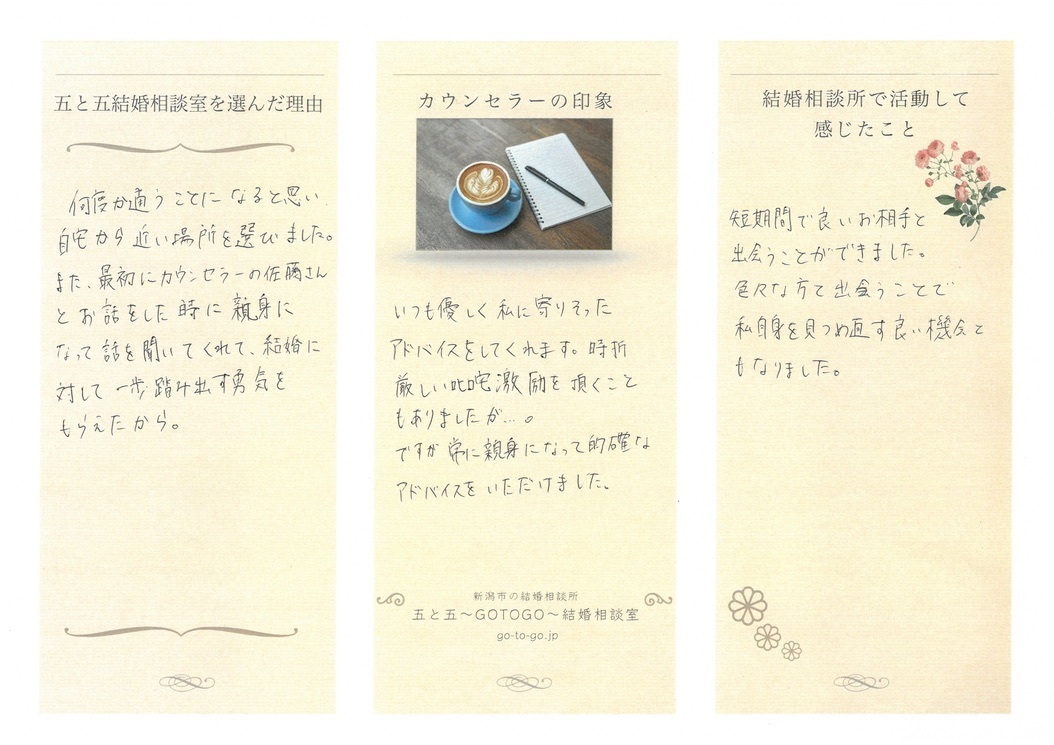 五と五結婚相談室を選んだ理由
何度か通うことになると思い
自宅から近い場所を選びました。
また、最初にカウンセラーの佐藤さん
とお話をした時に親身に
なって話を聞いてくれて、結婚に
対して一歩踏み出す勇気を
もらえたから。
カウンセラーの印象
いつも優しく私に寄りそった
アドバイスをしてくれます。時折
厳しい叱咤激励を頂くこと
もありましたが…。
ですが常に親身になって的確な
アドバイスをいただけました。
新潟市の結婚相談所
五と五～GOTOGO～結婚相談室
go-to-go.jp
結婚相談所で活動して
感じたこと
短期間で良いお相手と
出会うことができました。
色々な方と出会うことで
私自身を見つめ直す良い機会と
もなりました。